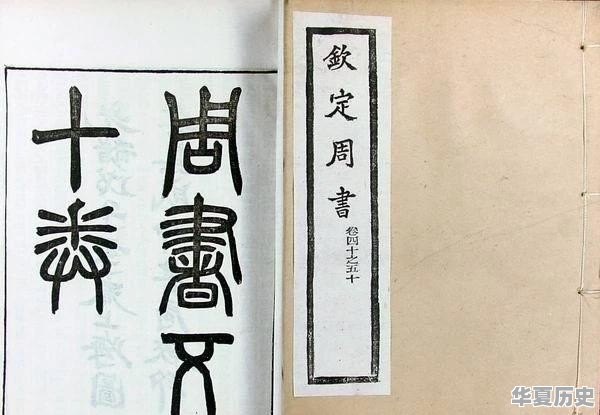 欽定周書
卷四十之五十
周書五
十卷
华夏历史